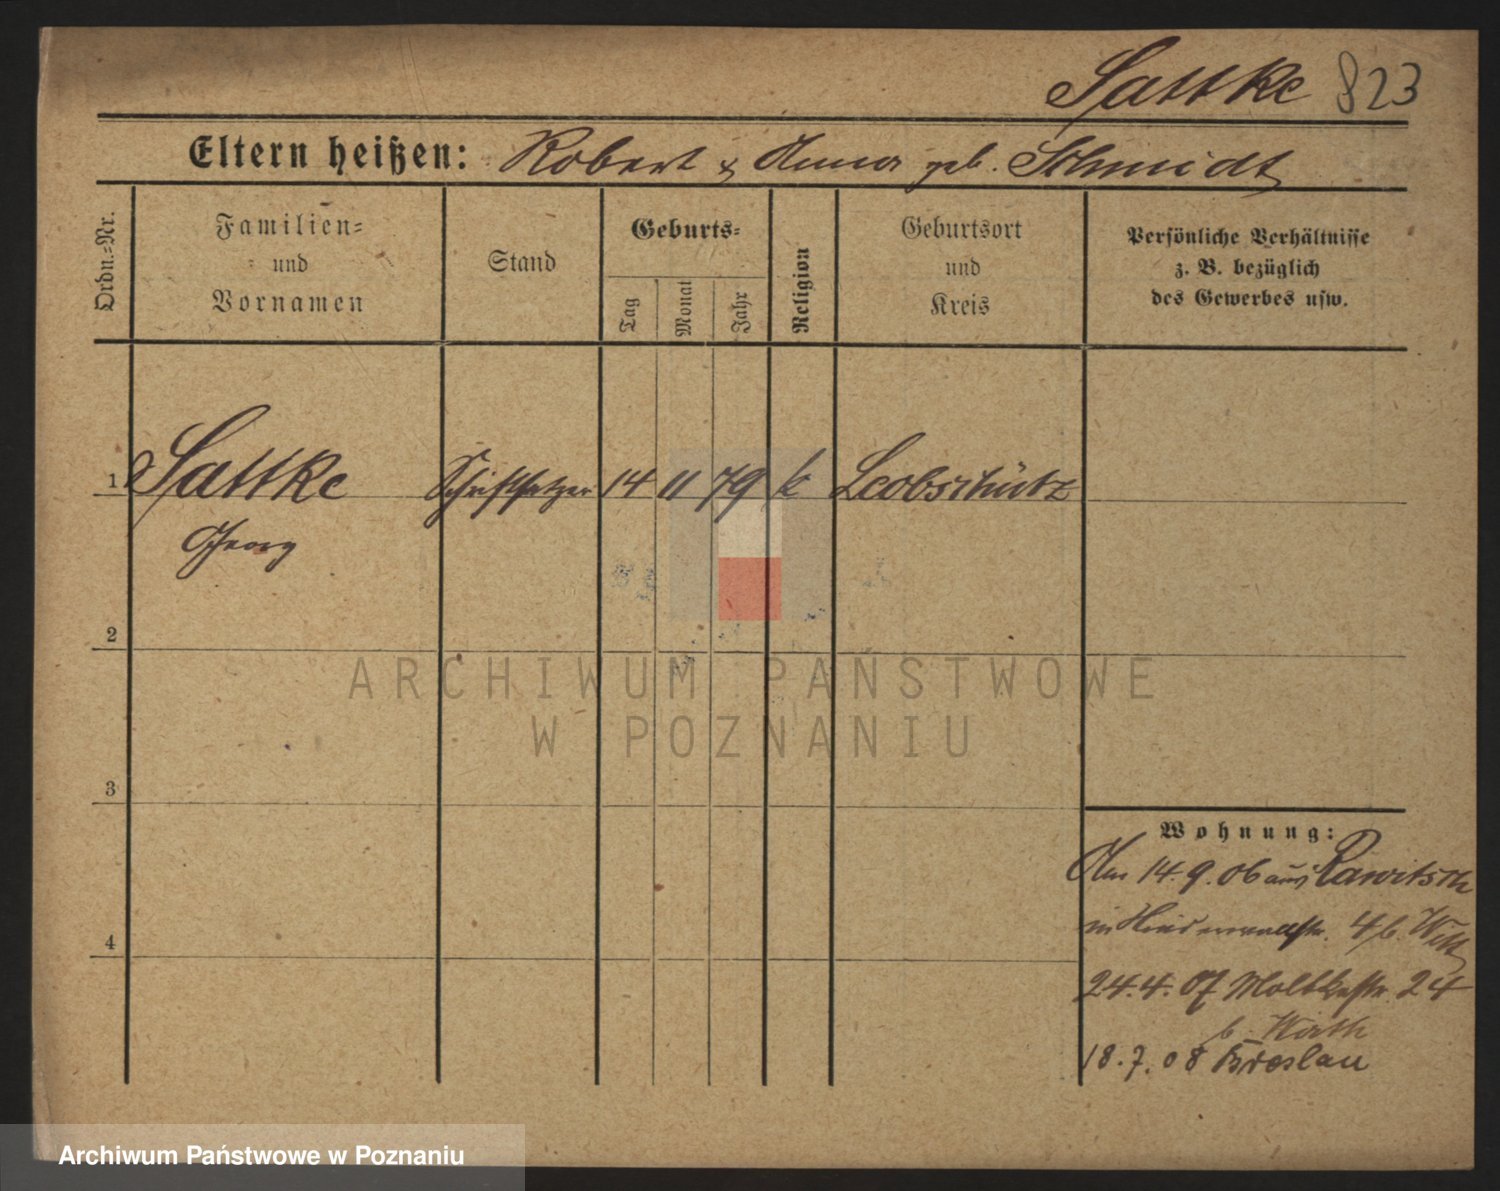 Sattke 823
Eltern heißen: Robert & Anna geb. Schmidt
Ordn.-Nr.
Familien-
und
Vornamen
Stand
Geburts-
Tag
Monat
Jahr
Religion
Geburtsort
und
Kreis
Persönliche Verhältnisse
z. B. bezüglich
des Gewerbes usw.
1 Sattke Schriftsetzer 14 11 79 k Leobschütz
Georg
2
3
4
Wohnung:
Am 14.9.06 aus Rawitsch
in 4 b. Witt
24.4.07 Moltkestr. 24
b. Wirth
18.7.08 Breslau
ARCHIWUM PAŃSTWOWE
W POZNANIU
Archiwum Państwowe w Poznaniu